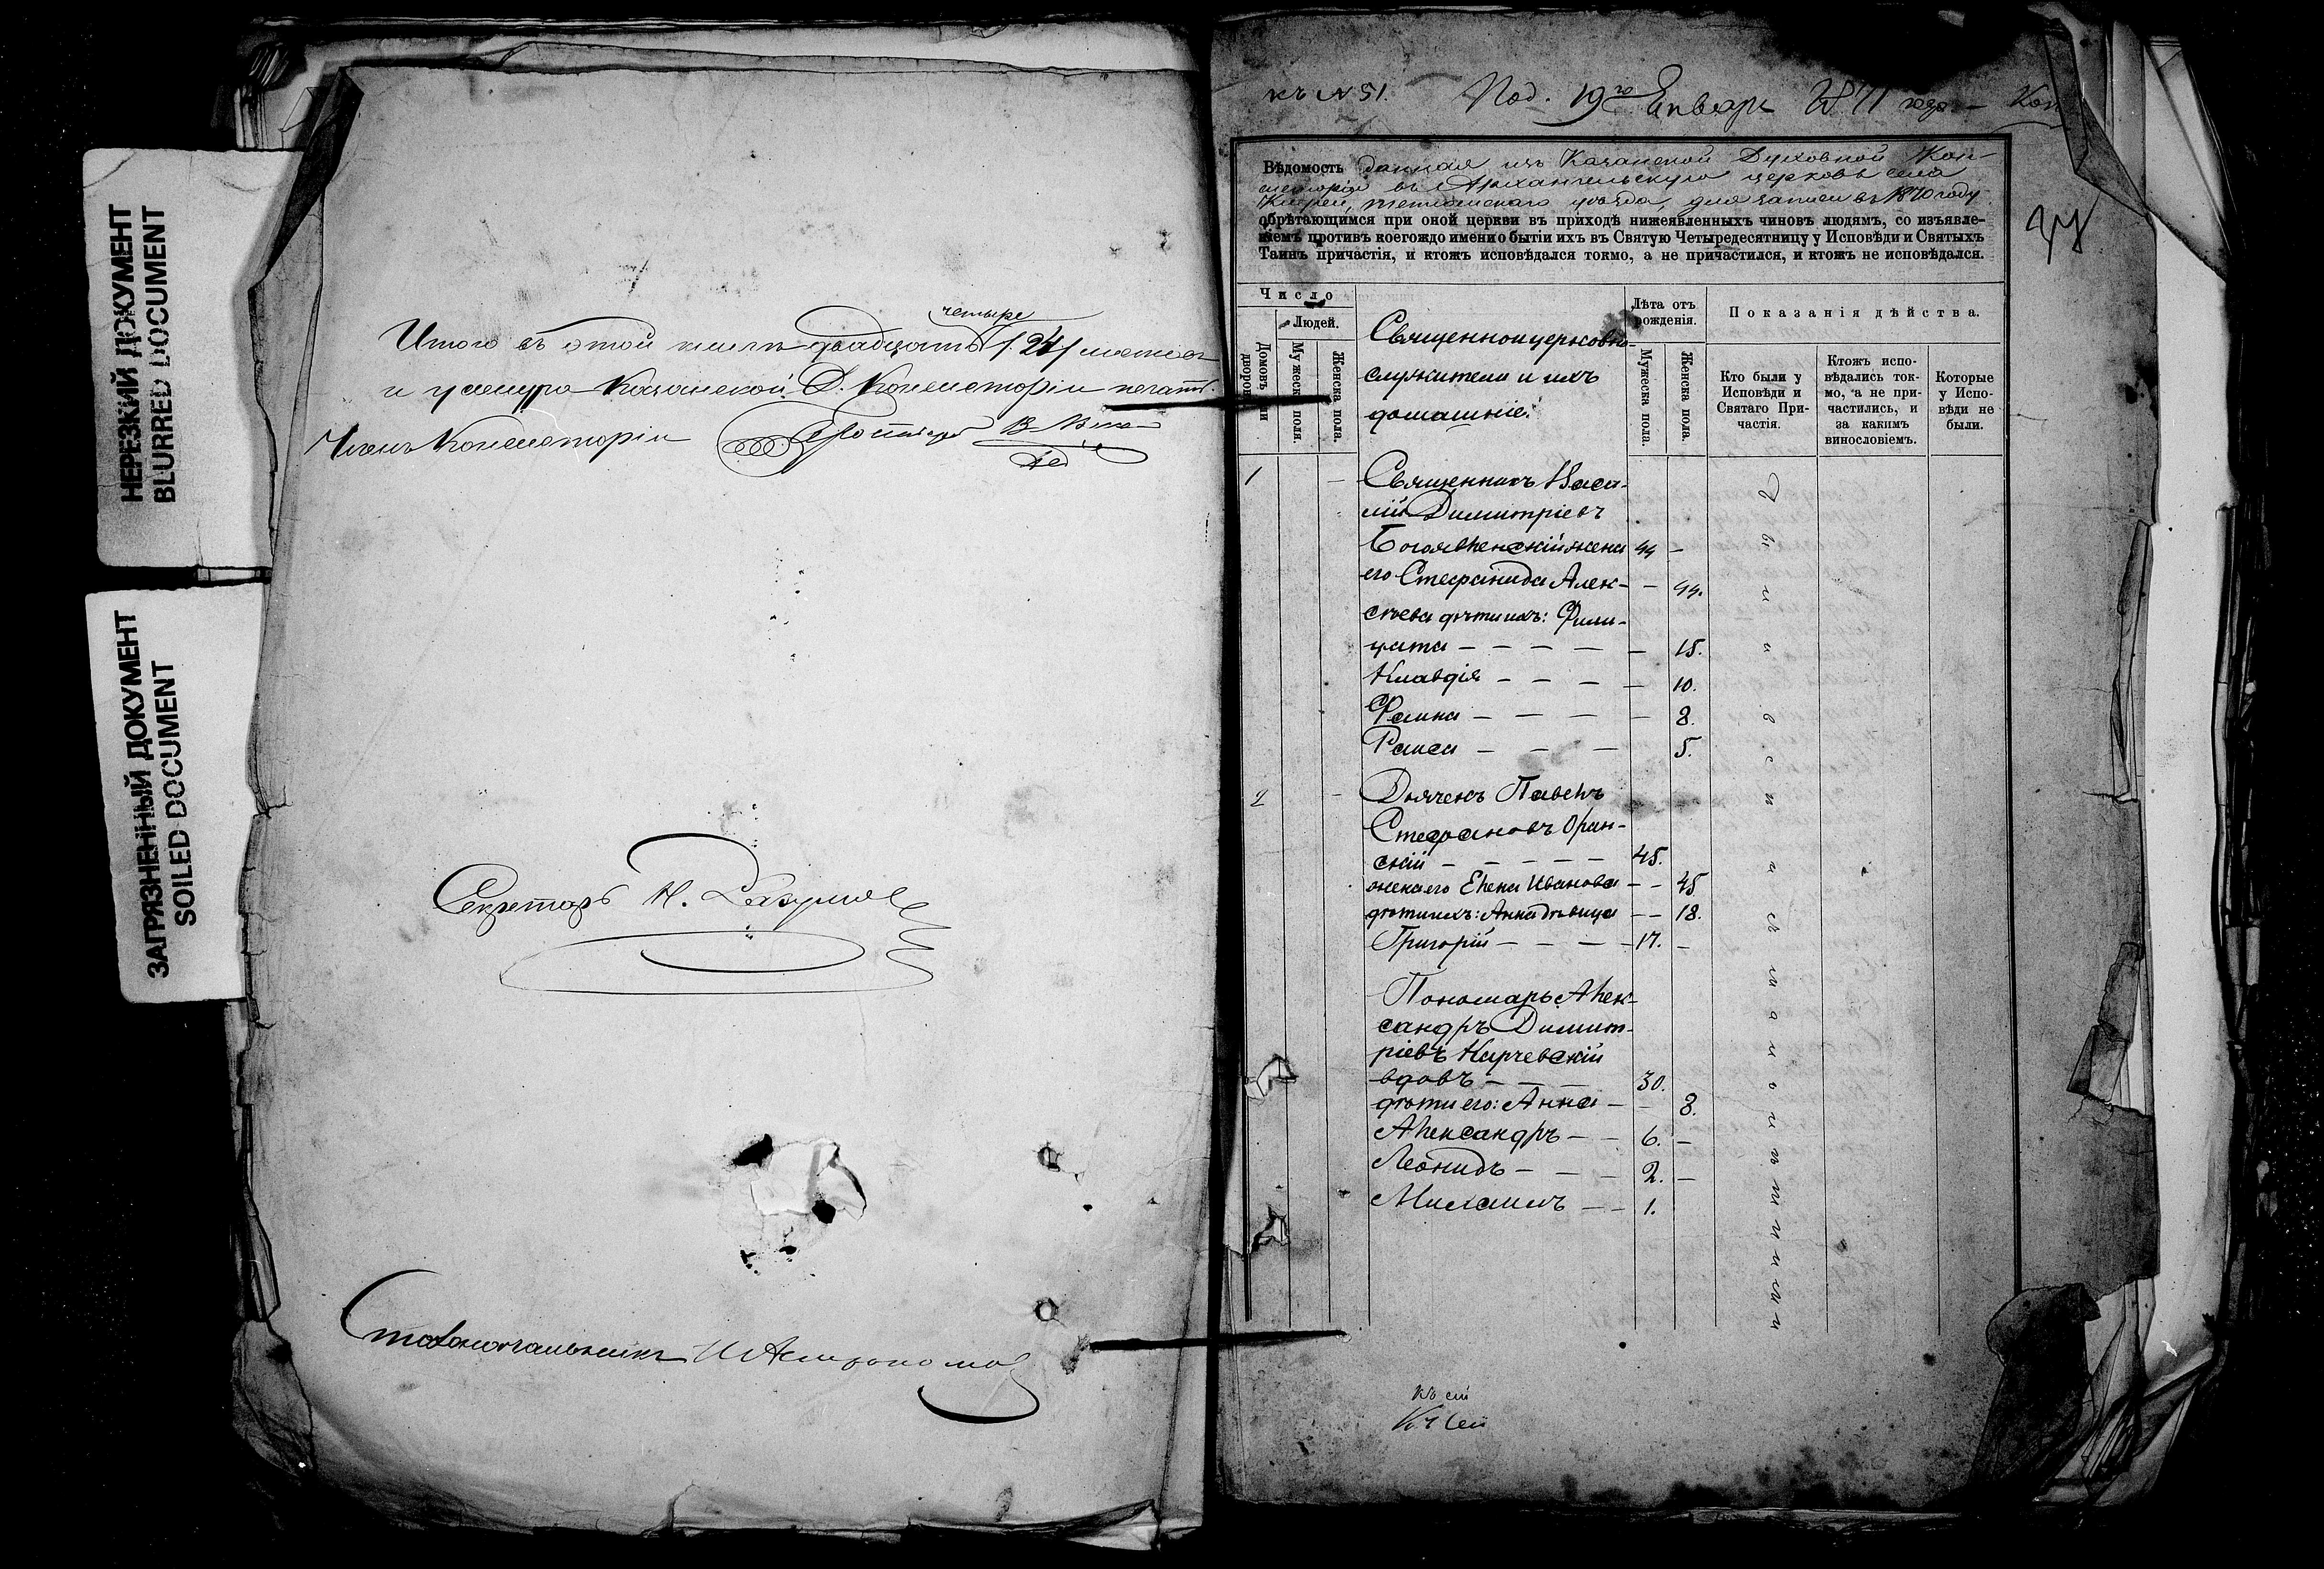 НЕРЕЗКИЙ ДОКУМЕНТ
BLURRED DOCUMENT
ЗАГРЯЗНЕННЫЙ ДОКУМЕНТ
SOILED DOCUMENT
четыре
Итого въ этой книгѣ двадцать /24/ листов
и у шнура Казанской Д. Консисторіи печать.
Членъ Консисторіи Протоіерей В.
Секретарь Н. Разумов
Столоначальникъ И Астрономов
къ № 51. Под. 19го Января 1871 года
34
Вѣдомость данная изъ Казанской Духовной Кон-
систоріи въ Архангельскую церковь села
Тетюшскаго уѣзда, для записи въ 1870 году
обрѣтающимся при оной церкви въ приходѣ нижеявленныхъ чиновъ людямъ, со изъявле-
ніемъ противъ коегождо имени о бытіи ихъ въ Святую Четыредесятницу у Исповѣди и Святыхъ
Таинъ причастія, и ктожъ исповѣдался токмо, а не причастился, и ктожъ не исповѣдался.
Число
Домовъ или дворовъ
Людей.
Мужеск. поля.
Женска пола.
Священноцерковно-
служители и ихъ
домашніе.
Лѣта отъ рожденія.
Мужеска пола.
Женска пола.
Показанія дѣйства.
Кто были у Исповѣди и Святаго При-частія.
Ктожъ испо-вѣдались ток-мо, а не при-частились, и за какимъ винословіемъ.
Которые у Испо-вѣди не были.
1 Священникъ Васи-
лій Димитріевъ
Богоявленскій жена 44 –
его Стефанида Алек- – 44.
сѣева дѣти ихъ: Фили-
цата – – – – – 15.
Клавдія – – – – 10.
Фаина – – – – 8.
Раиса – – – 5.
2 Дьячекъ Павелъ
Стефановъ Оран-
скій – – – – – 45.
жена его Елена Иванова – – 45
дѣти ихъ: Анна дѣвица – – 18.
Григорій – – – – 17. –
Пономарь Алек-
сандръ Димит-
ріевъ Карчевскій
вдовъ – – – 30.
дѣти его: Анна – – 8.
Александръ – – 6. –
Леонидъ – – – 2. –
Михаилъ – – 1.
къ сей